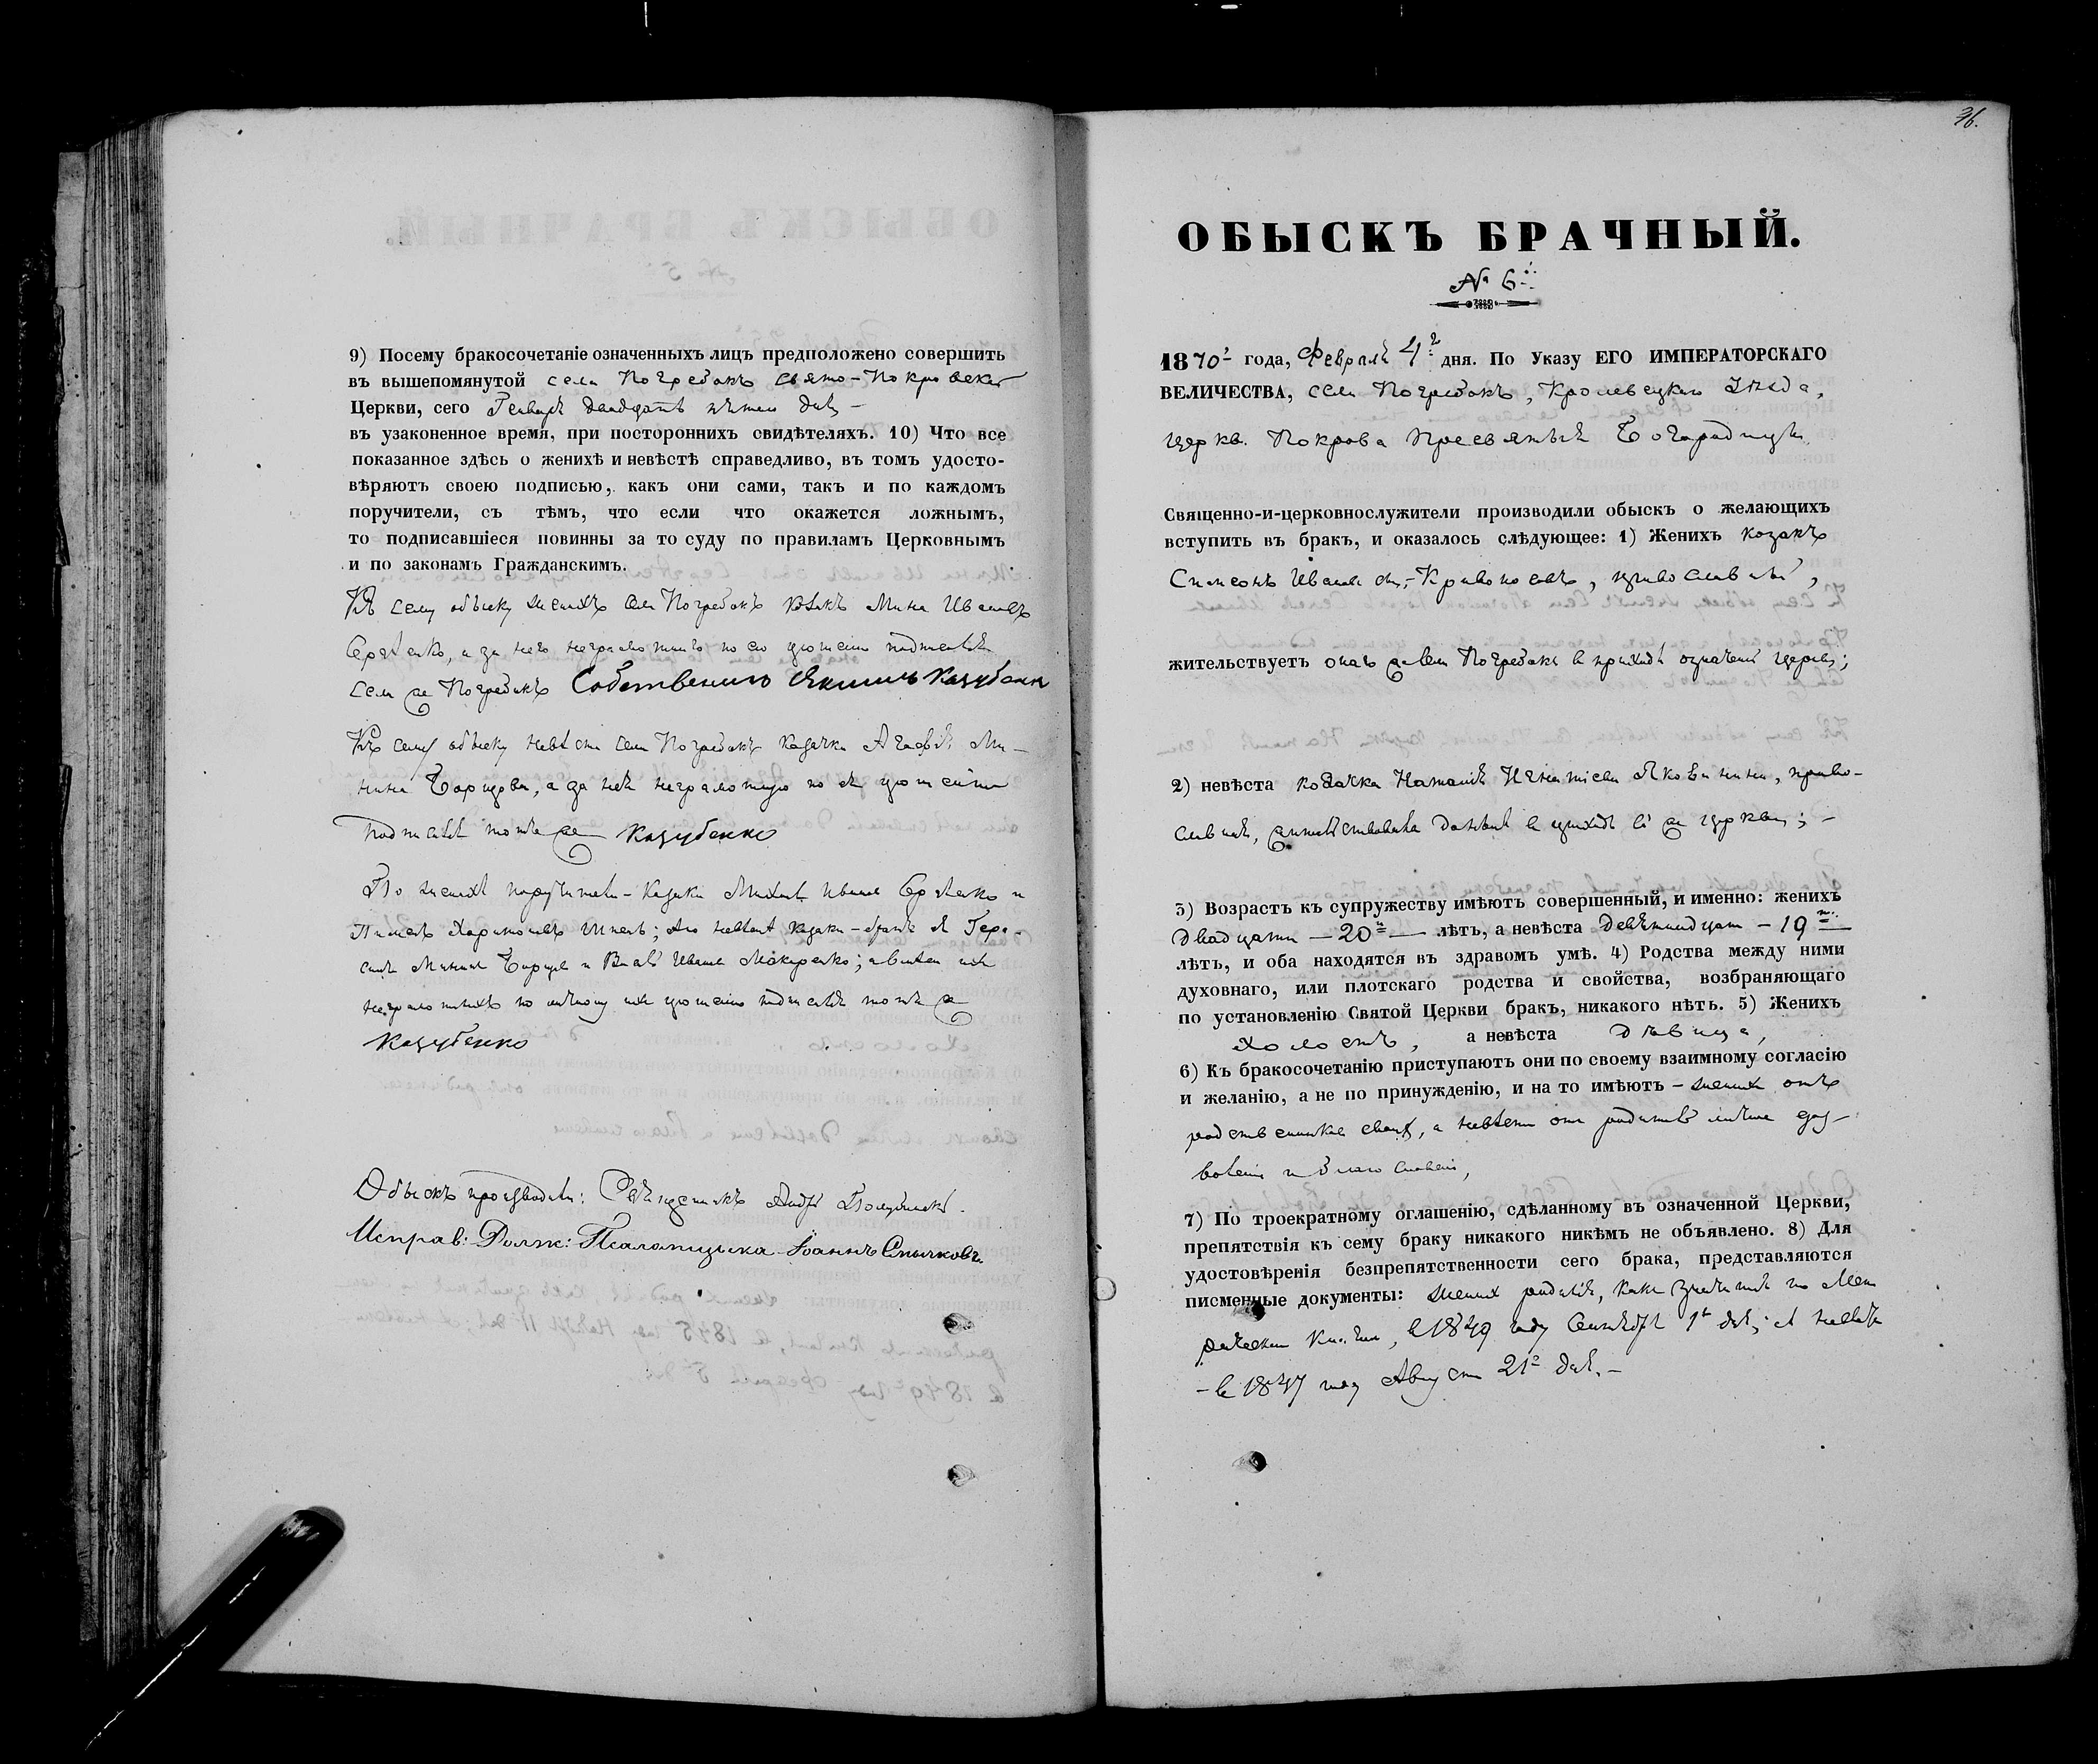 9) Посему бракосочетаніе означенныхъ лицъ предположено совершить
въ вышепомянутой села Погребокъ Свято-Покровской
Церкви, сего Генваря двадцать пятаго дня –
въ узаконенное время, при постороннихъ свидѣтеляхъ. 10) Что все
показанное здѣсь о женихѣ и невѣстѣ справедливо, въ томъ удосто-
вѣряютъ своею подписью, какъ они сами, такъ и по каждомъ
поручители, съ тѣмъ, что если что окажется ложнымъ,
то подписавшіеся повинны за то суду по правиламъ Церковнымъ
и по законамъ Гражданскимъ.
Къ сему обыску женихъ села Погребокъ козакъ Мина Ивановъ
Сергѣенко, а за него неграмотного по его прошенію подписался
села Погребокъ Собственникъ Якимъ Казубенко
Къ сему обыску невѣста села Погребокъ казачка Агафія Ми-
нина Борцова, а за неё неграмотную по её прошенію
подписался тотъ же Казубенко
По женихѣ поручители – Казаки Михаилъ Ивановъ Сергѣенко и
Пименъ Харитоновъ; по невѣстѣ казаки – братъ её Гера-
симъ Мининъ Борцовъ и Иванов Макаренко; а вмѣсто ихъ
неграмотныхъ по личному ихъ прошенію подписался тотъ же
Казубенко
Обыскъ производили: Священникъ Андрей
Исправ: Долж: Псаломщика Іоаннъ Спычковъ.
36.
ОБЫСКЪ БРАЧНЫЙ.
№ 6й
1870го года, Февраля 4го дня. По Указу ЕГО ИМПЕРАТОРСКАГО
ВЕЛИЧЕСТВА, села Погребокъ, Кролевецкаго Уѣзда,
церкв. Покрова Пресвятыя Богородицы
Священно-и-церковнослужители производили обыскъ о желающихъ
вступить въ бракъ, и оказалось слѣдующее: 1) Женихъ козакъ
Симеонъ Ивановъ сынъ Кривоносовъ, православный,
жительствуетъ онъ въ селѣ Погребкахъ въ приходѣ означенной церкви;
2) невѣста козачка Наталія Игнатіева Яковинина, право-
славная, жительствовала донынѣ въ приходѣ сей же церкви; –
3) Возрастъ къ супружеству имѣютъ совершенный, и именно: женихъ
двадцати – 20ти — лѣтъ, а невѣста девятнадцати – 19ти —
лѣтъ, и оба находятся въ здравомъ умѣ. 4) Родства между ними
духовнаго, или плотскаго родства и свойства, возбраняющаго
по установленію Святой Церкви бракъ, никакого нѣть. 5) Женихъ
холостъ, а невѣста дѣвица,
6) Къ бракосочетанію приступаютъ они по своему взаимному согласію
и желанію, а не по принужденію, и на то имѣютъ – женихъ отъ
родственниковъ своихъ, а невѣста отъ родителей личное доз-
воленіе и благословеніе,
7) По троекратному оглашенію, сдѣланному въ означенной Церкви,
препятствія къ сему браку никакого никѣмъ не объявлено. 8) Для
удостовѣренія безпрепятственности сего брака, представляются
писменные документы: женихъ родился, какъ значится по Мет-
рической Книгѣ, в 1849 году Сентября 1го дня; а невѣста
– в 1847 году Августа 21го дня. –